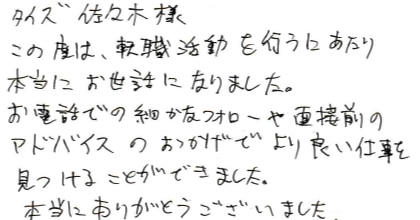 タイズ 佐々木様
この度は、転職活動を行うにあたり
本当にお世話になりました。
お電話での細かなフォローや面接前の
アドバイスのおかげでより良い仕事を
見つけることができました。
本当にありがとうございました。